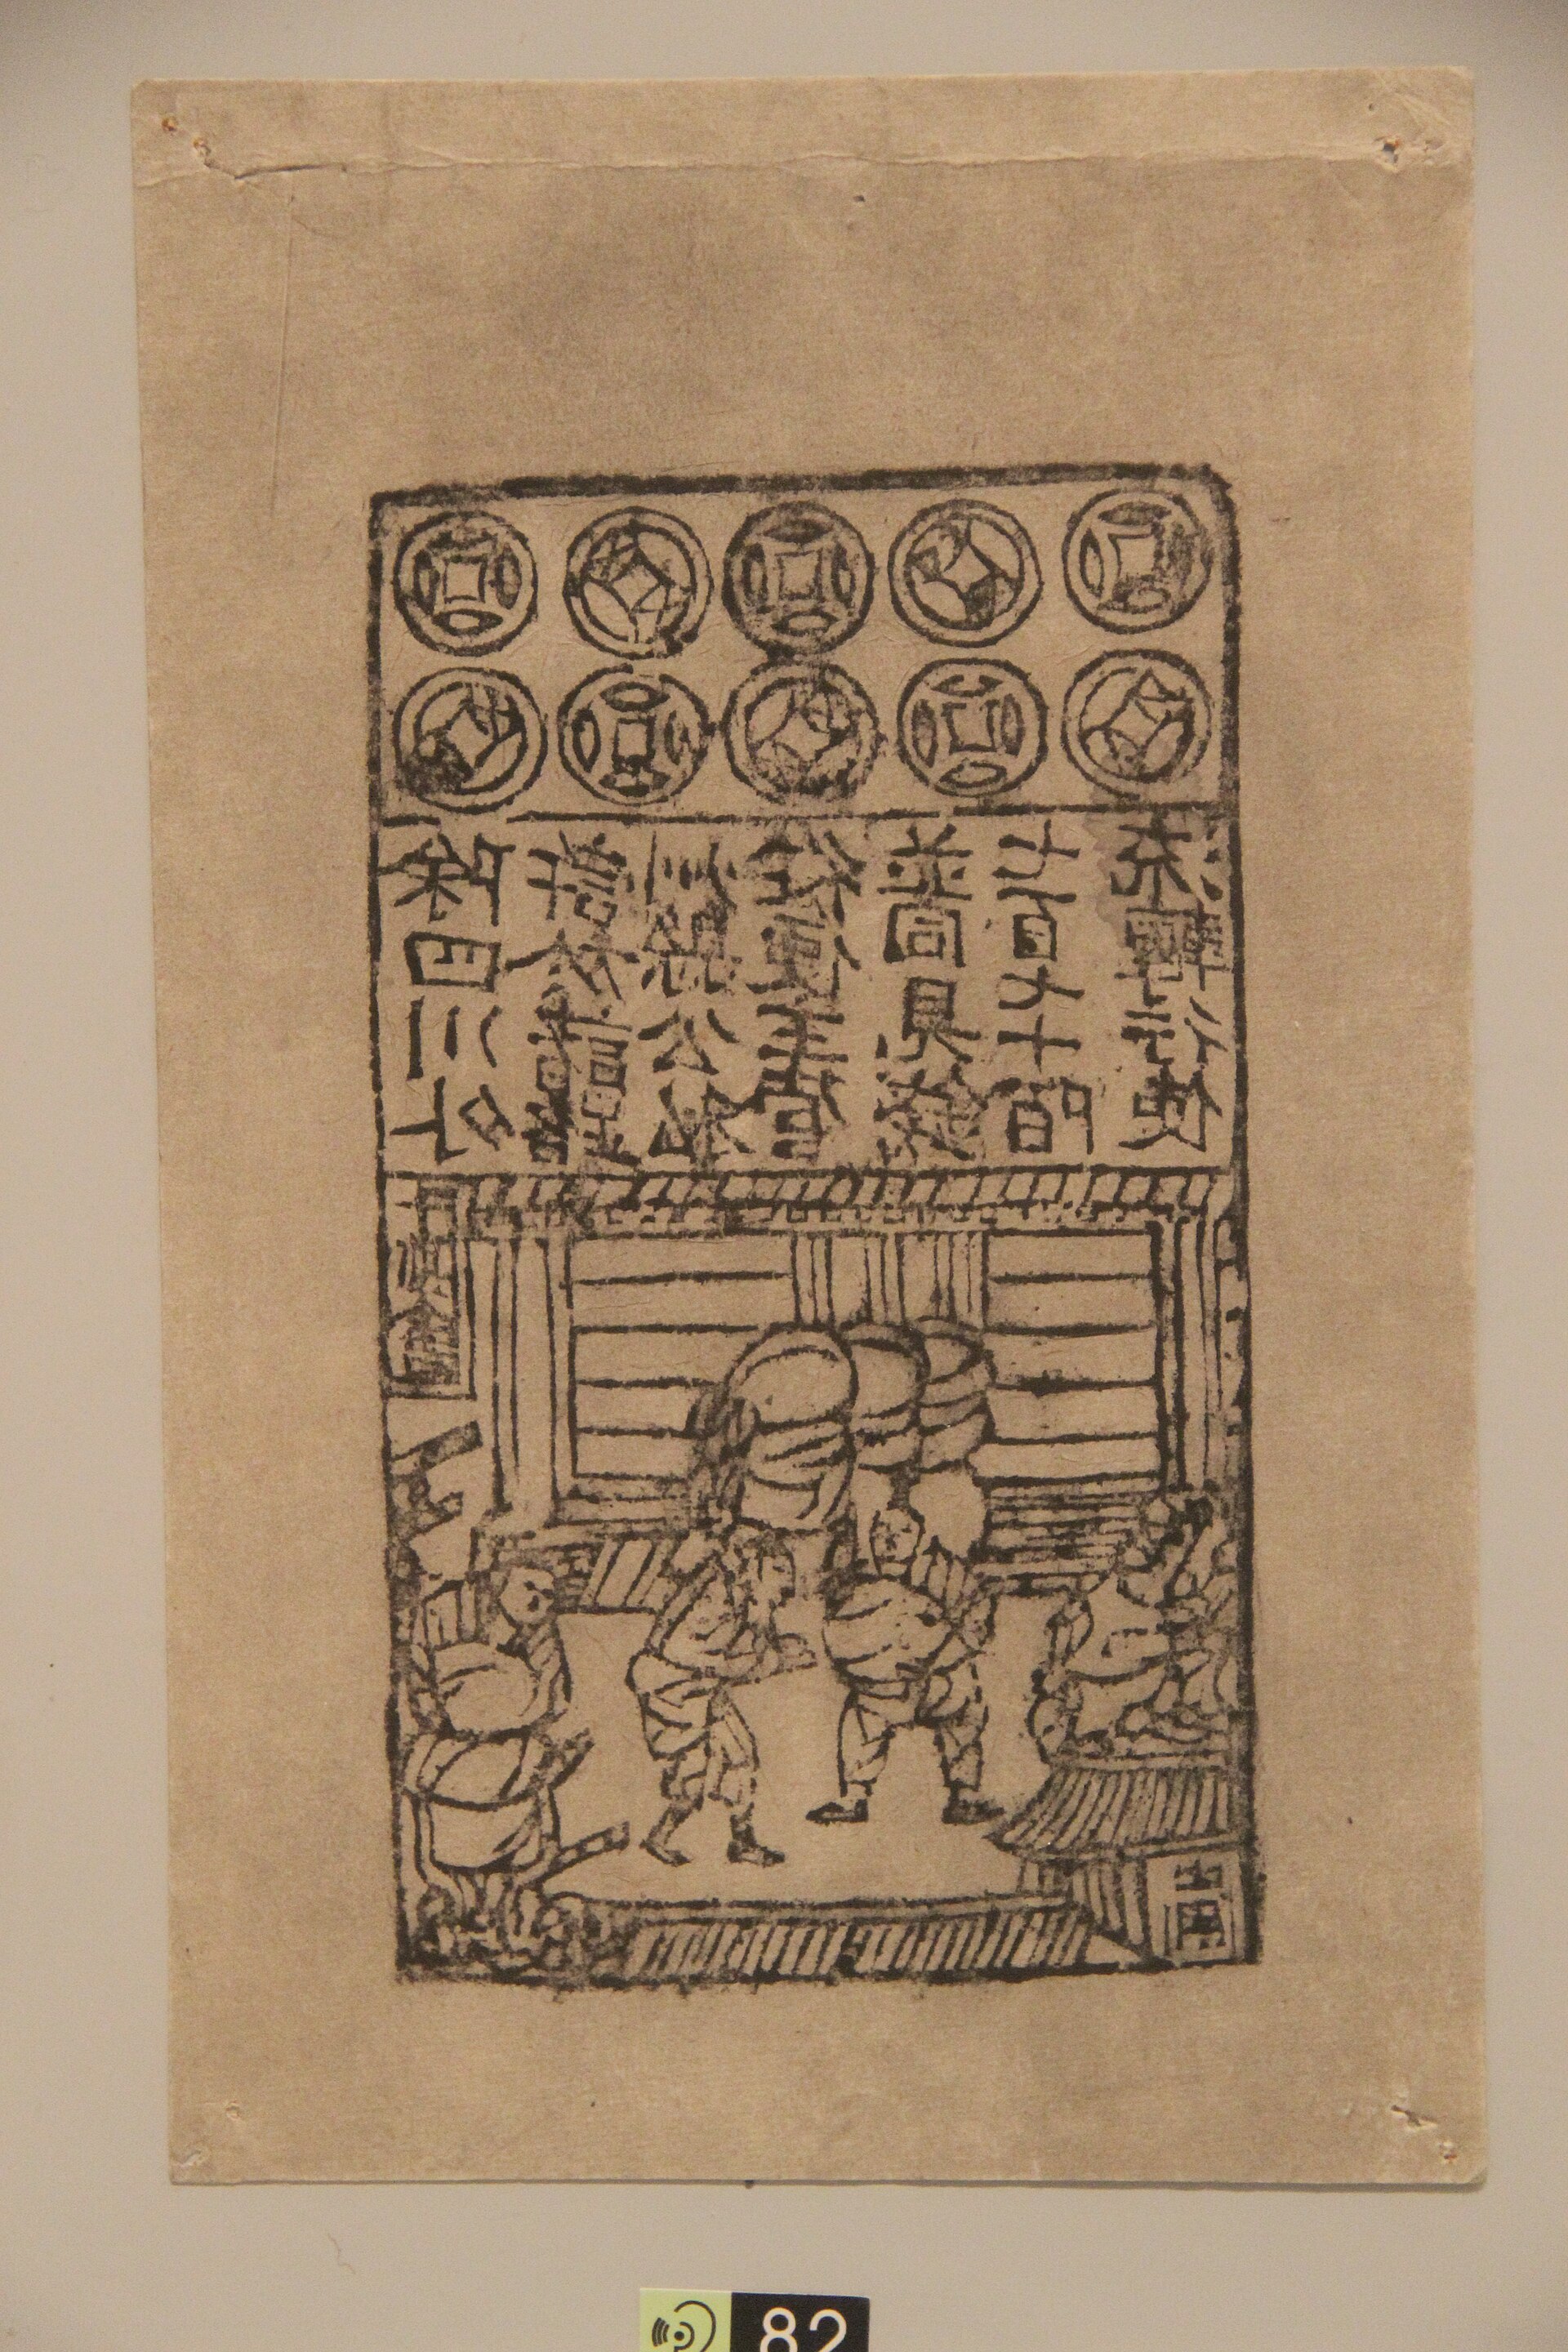 除四川外
許於諸路
州縣公私
從便主管
並同見錢
七百七十陌
流轉行使
千斯倉
82